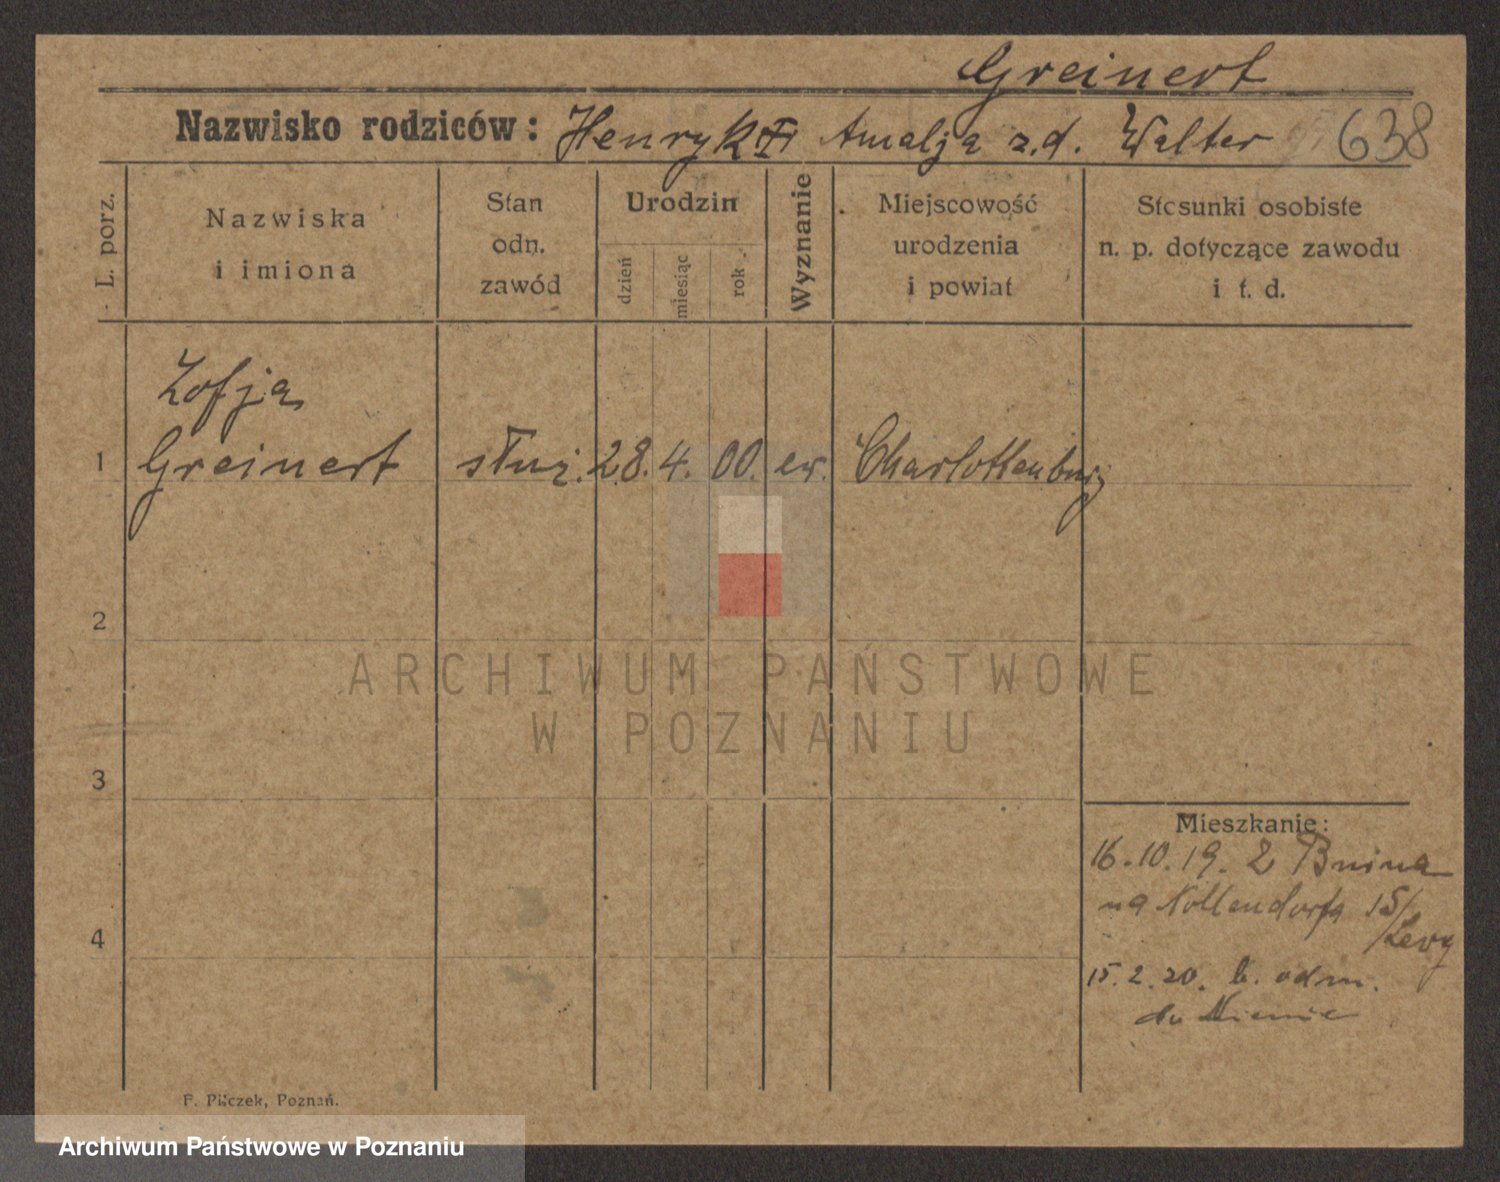 Greinert
Nazwisko rodziców: Henryk Amalja z.d. Walter 638
L. porz.
Nazwiska
i imiona
Stan
odn.
zawód
Urodzin
dzień
miesiąc
rok
Wyznanie
Miejscowość
urodzenia
i powiat
Stosunki osobiste
n. p. dotyczące zawodu
i t. d.
Zofja
1 Greinert służ. 28. 4. 00. ew. Charlottenburg
2
ARCHIWUM PAŃSTWOWE
W POZNANIU
3
Mieszkanie:
16.10.19. Z Bnina
na Nollendorfa 15/
Levy
4
15.2.20. b. odm.
do Niemic
F. Pilczek, Poznań.
Archiwum Państwowe w Poznaniu